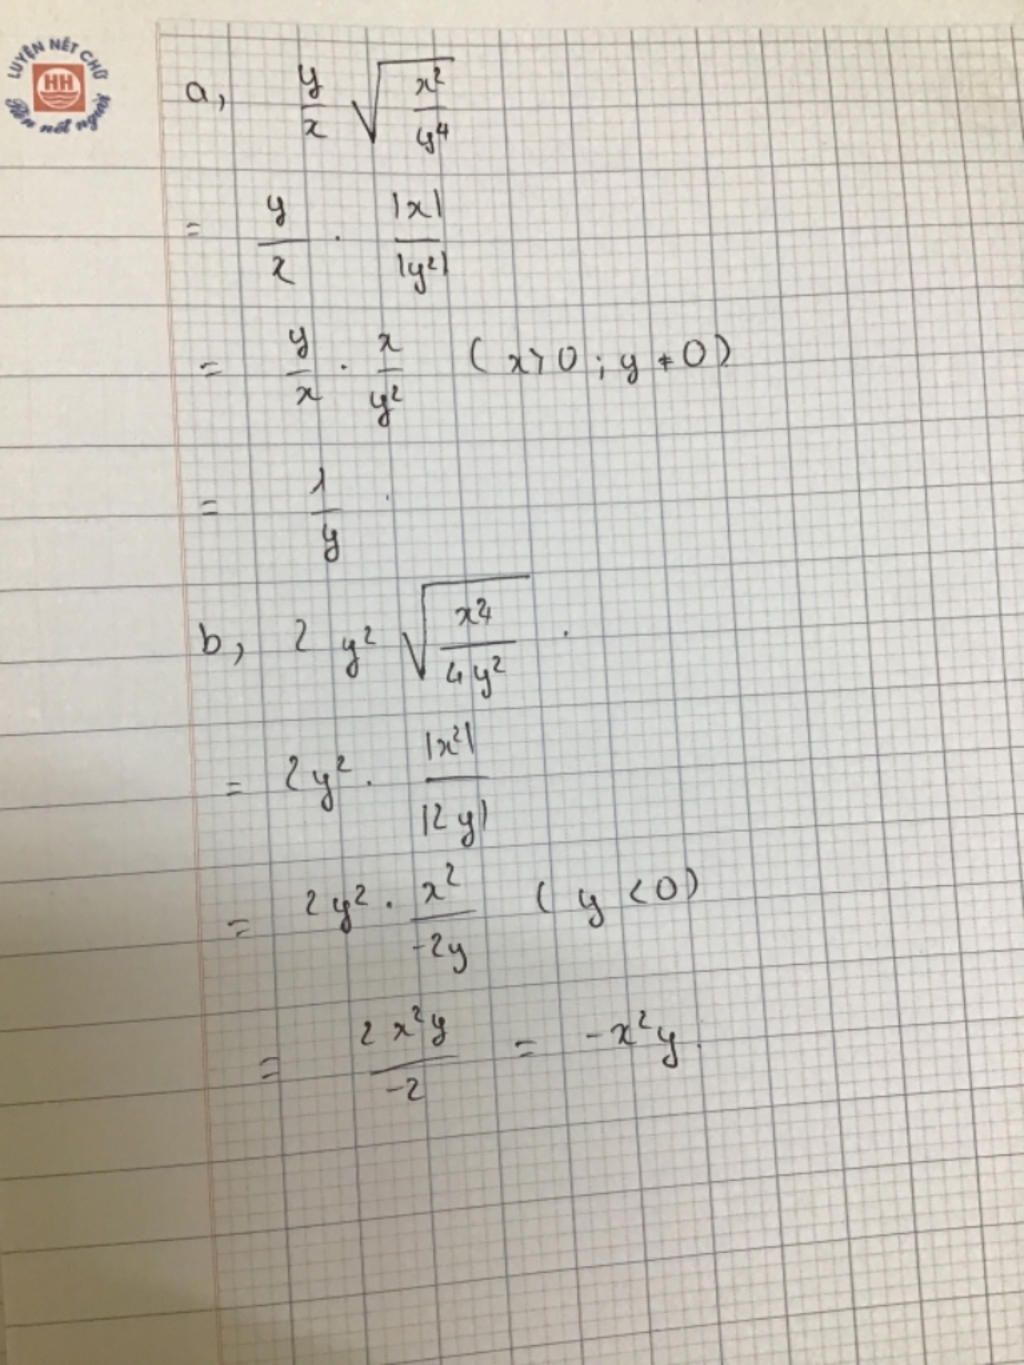 LUYỆN NÉT CHỮ
HH
Rèn nết người
a, y/x √(x²/y⁴)
= y/x · |x|/|y²|
= y/x · x/y² (x > 0 ; y ≠ 0)
= 1/y
b, 2y² √(x⁴/4y²) .
= 2y² · |x²|/|2y|
= 2y² · x²/-2y (y < 0)
= 2x²y/-2 = -x²y.